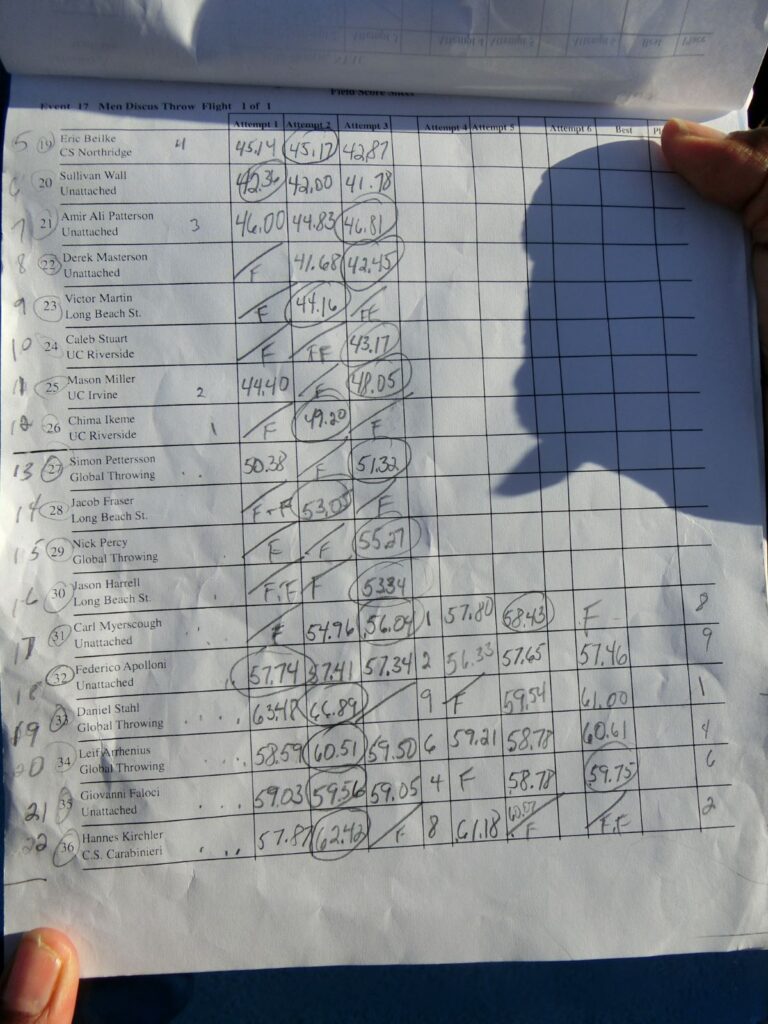 Field Score Sheet
Event 17 Men Discus Throw Flight 1 of 1
Attempt 1 Attempt 2 Attempt 3 Attempt 4 Attempt 5 Attempt 6 Best
5 19 Eric Beilke 4 45.14 45.17 42.87
CS Northridge
20 Sullivan Wall 42.36 42.00 41.78
Unattached
7 21 Amir Ali Patterson 3 46.00 44.83 46.81
Unattached
8 22 Derek Masterson F 41.68 42.45
Unattached
9 23 Victor Martin F 44.16 FF
Long Beach St.
10 24 Caleb Stuart F FF 43.17
UC Riverside
11 25 Mason Miller 2 44.40 F 48.05
UC Irvine
12 26 Chima Ikeme 1 F 49.20 F
UC Riverside
13 27 Simon Pettersson 50.38 F 51.32
Global Throwing
14 28 Jacob Fraser F-F 53.05 F
Long Beach St.
15 29 Nick Percy F F 55.27
Global Throwing
16 30 Jason Harrell F.F F 53.34
Long Beach St.
17 31 Carl Myerscough F 54.96 56.04 1 57.80 58.43 F 8
Unattached
18 32 Federico Apolloni 57.74 57.41 57.34 2 56.33 57.65 57.46 9
Unattached
19 33 Daniel Stahl 63.48 66.89 9 F 59.54 61.00 1
Global Throwing
20 34 Leif Arrhenius 58.59 60.51 59.50 6 59.21 58.78 60.61 4
Global Throwing
21 35 Giovanni Faloci 59.03 59.56 59.05 4 F 58.78 59.75 6
Unattached
22 36 Hannes Kirchler 57.87 62.42 F 8 61.18 60.07 F F.F 2
C.S. Carabinieri